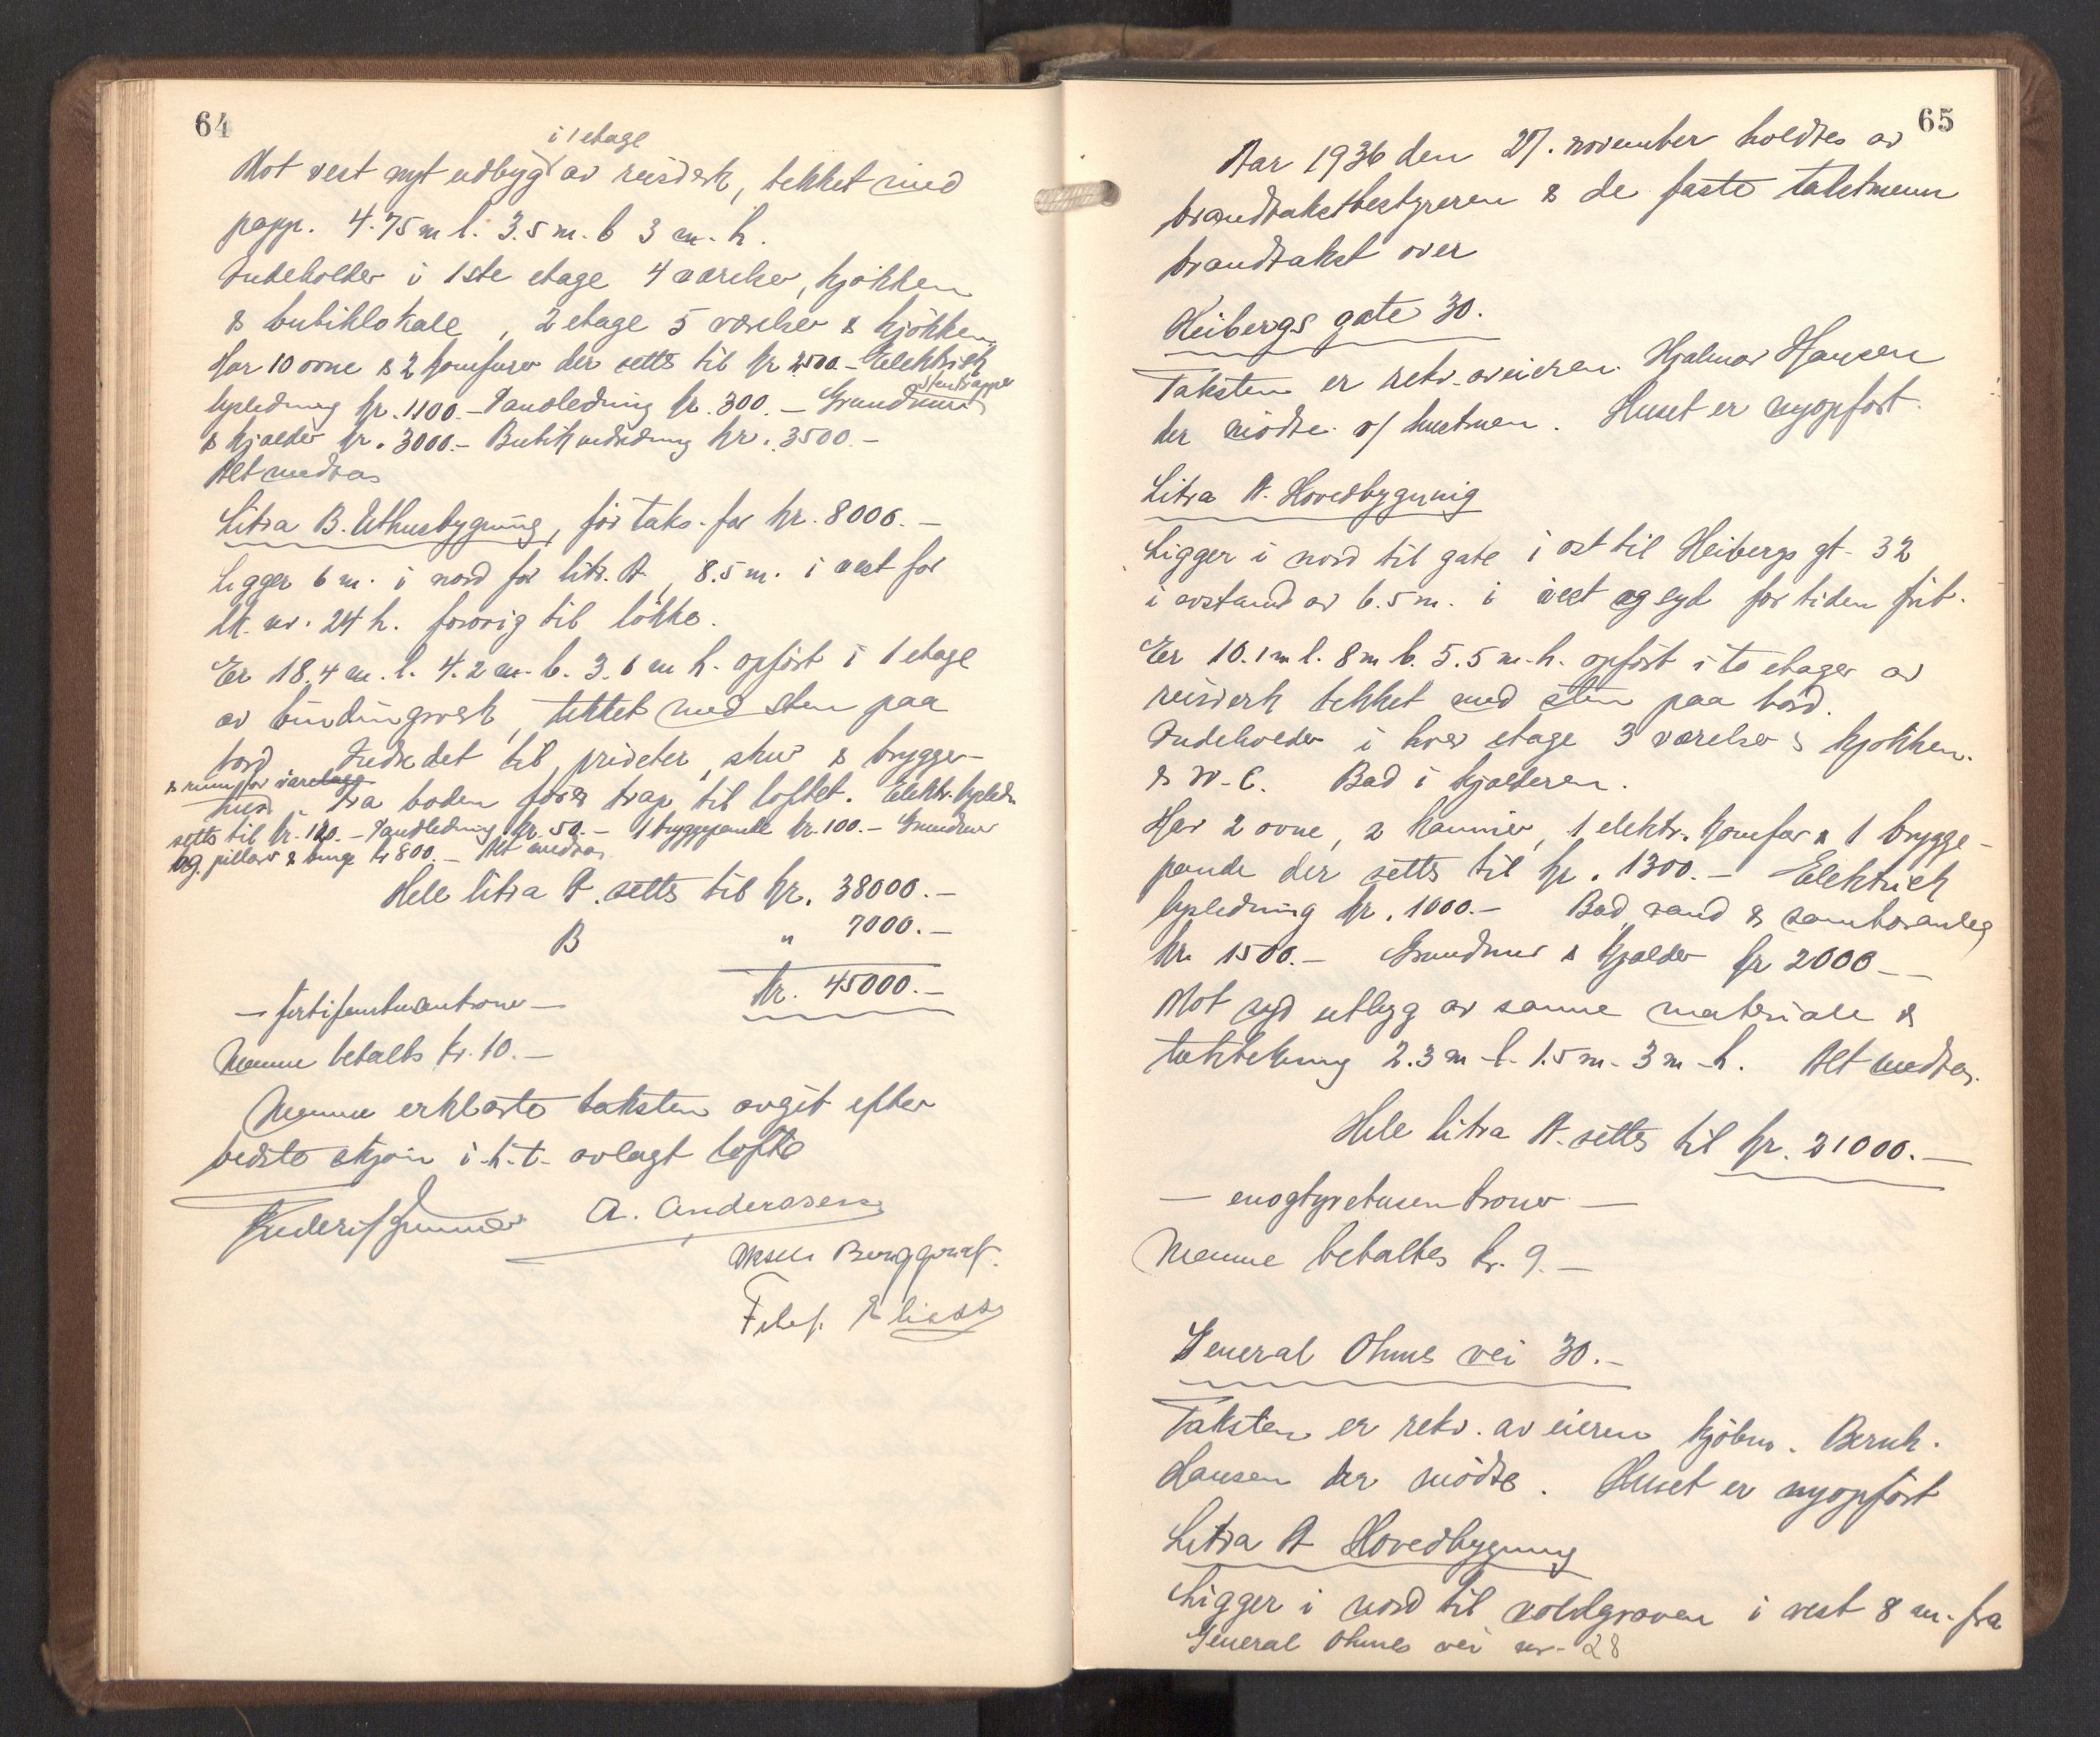 64
i 1 etage
Mot vest nyt udbyg av reisverk, tekket med
papp. 4.75 m l. 3.5 m. b 3 m. h.
Indeholder i 1ste etage 4 værelser, kjøkken
& butiklokale, 2 etage 5 værelser & kjøkken
Har 10 ovne & 2 komfurer der settes til kr 2500.- Elektrisk
stentrapper
opledning kr. 1100.- Vandledning kr. 300.- Grundmur
& kjælder kr. 3000.- Butikindredning kr. 3500.-
Alt medtas
Litra B. Uthusbygning, før taks. for kr. 8000.-
Ligger 6 m. i nord for litr. A, 8.5 m. i vest for
M. nr. 24 h. forøvrig til løkke.
Er 18.4 m. l. 4.2 m. b. 3.6 m h. opført i 1 etage
av bindingsverk, tekket med sten paa
bord. Indredet til priveter, skur & brygger-
& rum for varelager
hus. Fra boden fører trap til loftet. Elektr. opledn
settes til kr. 100.- Vandledning kr. 50.- 1 bryggepande kr. 100.- Grundmur
og pillarer & kr 800.- Alt medtas
Hele litra A. settes til kr. 38000.-
B " 7000.-
kr. 45000.-
- førtifemtusenkroner -
Mænne betaltes kr. 10.-
Mænne erklærte taksten avgit efter
bedste skjøn i.h.t. avlagt løfte
A. Anderssen
Berggraf.
65
Aar 1936 den 27. november holdtes av
brandtakstbestyreren & de faste takstmenn
brandtakst over
Heibergs gate 30.
Taksten er rekv. av eieren Hjalmar Hansen
der mødte v/ hustruen. Huset er nyopført.
Litra A. Hovedbygning
Ligger i nord til gate i øst til Heibergs gt. 32
i avstand av 6.5 m. i vest og syd for tiden frit.
Er 10.1 m l. 8 m b. 5.5 m. h. opført i to etager av
reisverk tekket med sten paa bord.
Indeholder i hver etage 3 værelser & kjøkken.
& W.C. Bad i kjælderen.
Har 2 ovne, 2 kaminer, 1 elektr. komfur & 1 brygge-
pande der settes til kr. 1300.- Elektrisk
opledning kr. 1000.- Bad, vand & sanitæranlæg
kr. 1500.- Grundmur & kjælder kr 2000.-
Mot syd utbygg av samme materiale &
taktekking 2.3 m l. 1.5 m. 3 m h. Alt medtas.
Hele litra A. settes til kr. 21000.-
- enogtyvetusenkroner -
Mænne betaltes kr. 9.-
General Ohmes vei 30.-
Taksten er rekv. av eieren kjøbm. Bernh.
Hansen der mødte. Huset er nyopført
Litra A Hovedbygning
Ligger i nord til voldgraven i vest 8 m. fra
General Ohmes vei nr. 28